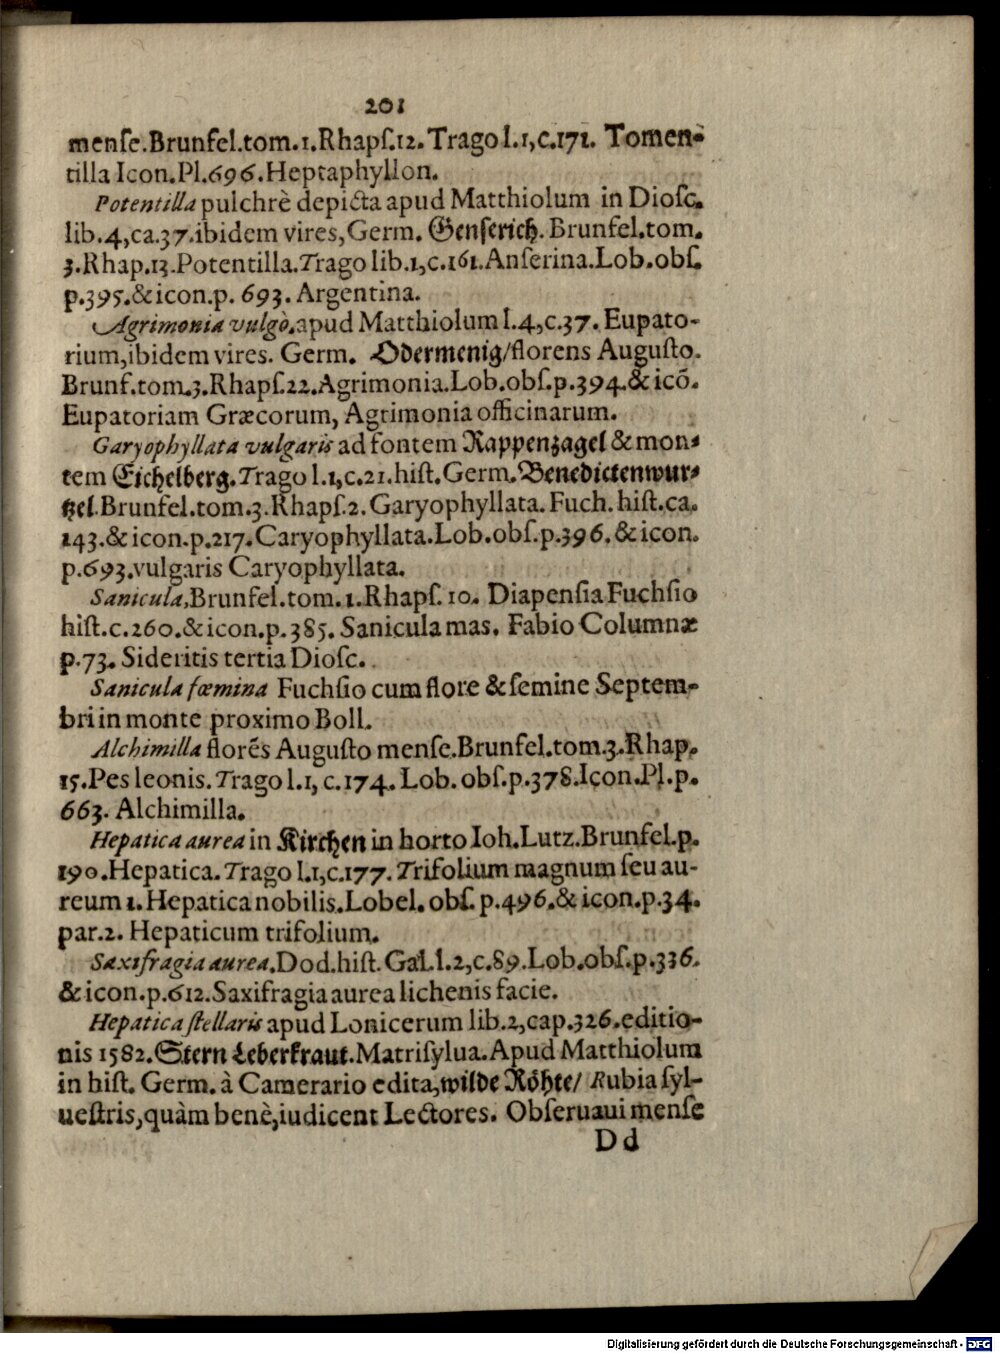 201
menſe.Brunfel.tom.1.Rhapſ.12.Trago l.1,c.171. Tomen-
tilla Icon.Pl.696.Heptaphyllon.
Potentilla pulchrè depicta apud Matthiolum in Dioſc.
lib.4,ca.37.ibidem vires,Germ. Genſerich. Brunfel.tom.
3.Rhap.13.Potentilla.Trago lib.1,c.161.Anſerina.Lob.obſ.
p.395.&icon.p. 693. Argentina.
Agrimonia vulgò.apud Matthiolum l.4,c.37. Eupato-
rium,ibidem vires. Germ. Odermenig/florens Auguſto.
Brunf.tom.3.Rhapſ.22.Agrimonia.Lob.obſ.p.394.& icō.
Eupatoriam Græcorum, Agrimonia officinarum.
Garyophyllata vulgaris ad fontem Rappenzagel & mon-
tem Eichelberg.Trago l.1,c.21.hiſt.Germ.Benedictenwur-
tzel.Brunfel.tom.3.Rhapſ.2.Garyophyllata.Fuch.hiſt.ca.
143.& icon.p.217.Caryophyllata.Lob.obſ.p.396.& icon.
p.693.vulgaris Caryophyllata.
Sanicula,Brunfel.tom.1.Rhapſ.10. Diapenſia Fuchſio
hiſt.c.260.& icon.p.385. Sanicula mas. Fabio Columnæ
p.73. Sideritis tertia Dioſc.
Sanicula fœmina Fuchſio cum flore & ſemine Septem-
bri in monte proximo Boll.
Alchimilla florẽs Auguſto menſe.Brunfel.tom.3.Rhap.
15.Pes leonis.Trago l.1, c.174. Lob. obſ.p.378.Icon.Pl.p.
663. Alchimilla.
Hepatica aurea in Kirchen in horto Ioh.Lutz.Brunfel.p.
190.Hepatica.Trago l.1,c.177.Trifolium magnum ſeu au-
reum 1.Hepatica nobilis.Lobel. obſ. p.496.& icon.p.34.
par.2. Hepaticum trifolium.
Saxifragia aurea.Dod.hiſt.Gal.l.2,c.89.Lob.obſ.p.336.
& icon.p.612.Saxifragia aurea lichenis facie.
Hepatica ſtellaris apud Lonicerum lib.2,cap.326.editio-
nis 1582.Stern Leberkraut.Matriſylua.Apud Matthiolum
in hiſt. Germ. à Camerario edita,wilde Röhte/ Rubia ſyl-
ueſtris,quàm benè,iudicent Lectores. Obſeruaui menſe
Dd
Digitalisierung gefördert durch die Deutsche Forschungsgemeinschaft - DFG